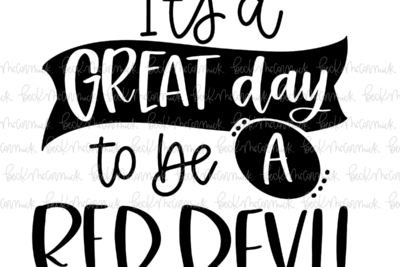 It's a
GREAT day
to be A
RED DEVIL